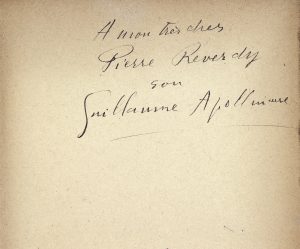 A mon très cher
Pierre Reverdy
son
Guillaume Apollinaire